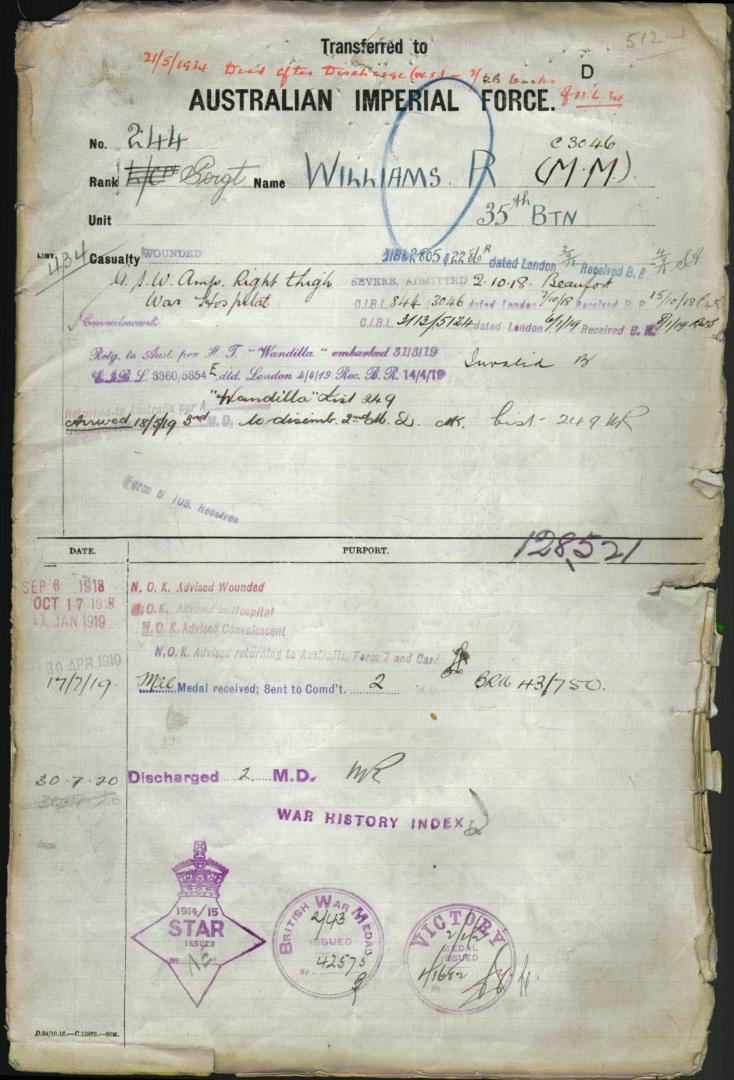 512
Transferred to
21/5/1934 Died after Discharge
D
AUSTRALIAN IMPERIAL FORCE.
No. 244
C 3046
Rank L/Cpl Sergt Name WILLIAMS. R (M.M)
Unit 35th BTN
LIST 434
Casualty WOUNDED dated London Received B.R.
G.S.W. Amp. Right thigh SEVERE, ADMITTED 2.10.18. Beaufort
War Hospital C.I.B.L. 846 3046 dated London 7/10/18 Received B.R. 15/10/18
Convalescent C.I.B.L. 3113/5124 dated London 6/1/19 Received B.R. 8/1/19
Retg. to Aust. per H. T. "Wandilla" embarked 31/3/19 Invalid
3360/5854 E dtd. London 4/4/19 Rec. B.R. 14/4/19
"Wandilla" List 249
Arrived 18/5/19 3rd M.D. to disemb. 2nd M.D. List 249
Form B 103 Received
128,521
DATE. PURPORT.
SEP 6 1918 N. O. K. Advised Wounded
OCT 17 1918 N.O.K. Advised in Hospital
11 JAN 1919 N.O.K. Advised Convalescent
30 APR 1919 N.O.K. Advised returning to Australia, Form 7 and Card
17/7/19 Mil Medal received; Sent to Comd't. 2 M.D. BRM 43/750.
30-7-20 Discharged 2 M.D. MR
WAR HISTORY INDEX
1914/15
STAR
ISSUED
BRITISH WAR MEDAL
2/43
ISSUED
No. 42575
VICTORY
MEDAL
ISSUED